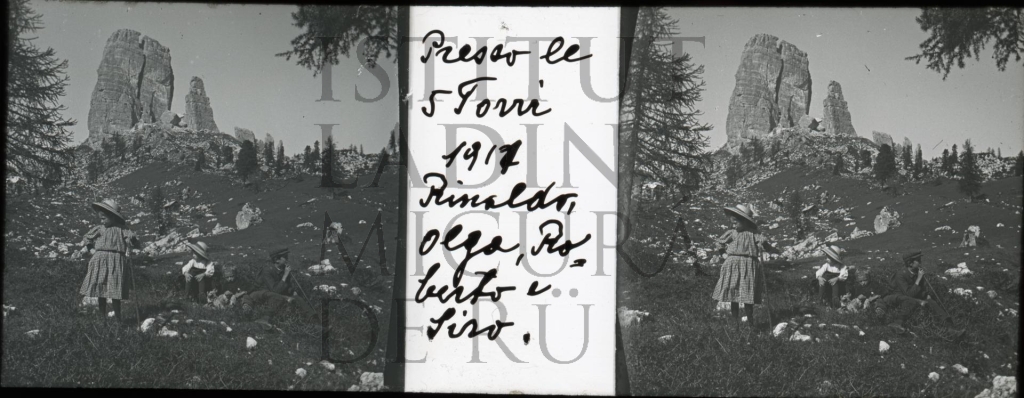 Presso le
5 Torri
1917
Rinaldo,
Olga, Ro=
berto e
Siro.
ISTITUT
LADIN
MICURÁ
DE RÜ